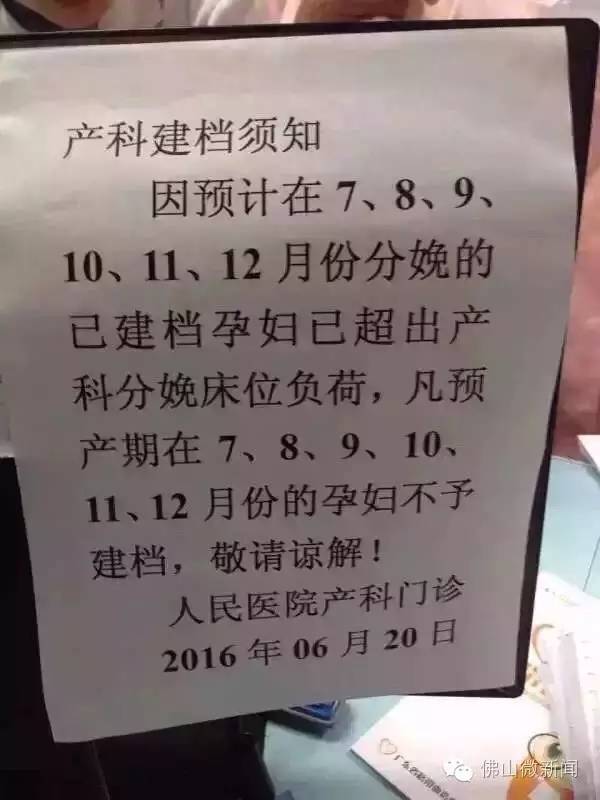 产科建档须知
因预计在 7、8、9、
10、11、12 月份分娩的
已建档孕妇已超出产
科分娩床位负荷，凡预
产期在 7、8、9、10、
11、12 月份的孕妇不予
建档，敬请谅解！
人民医院产科门诊
2016 年 06 月 20 日
佛山微新闻